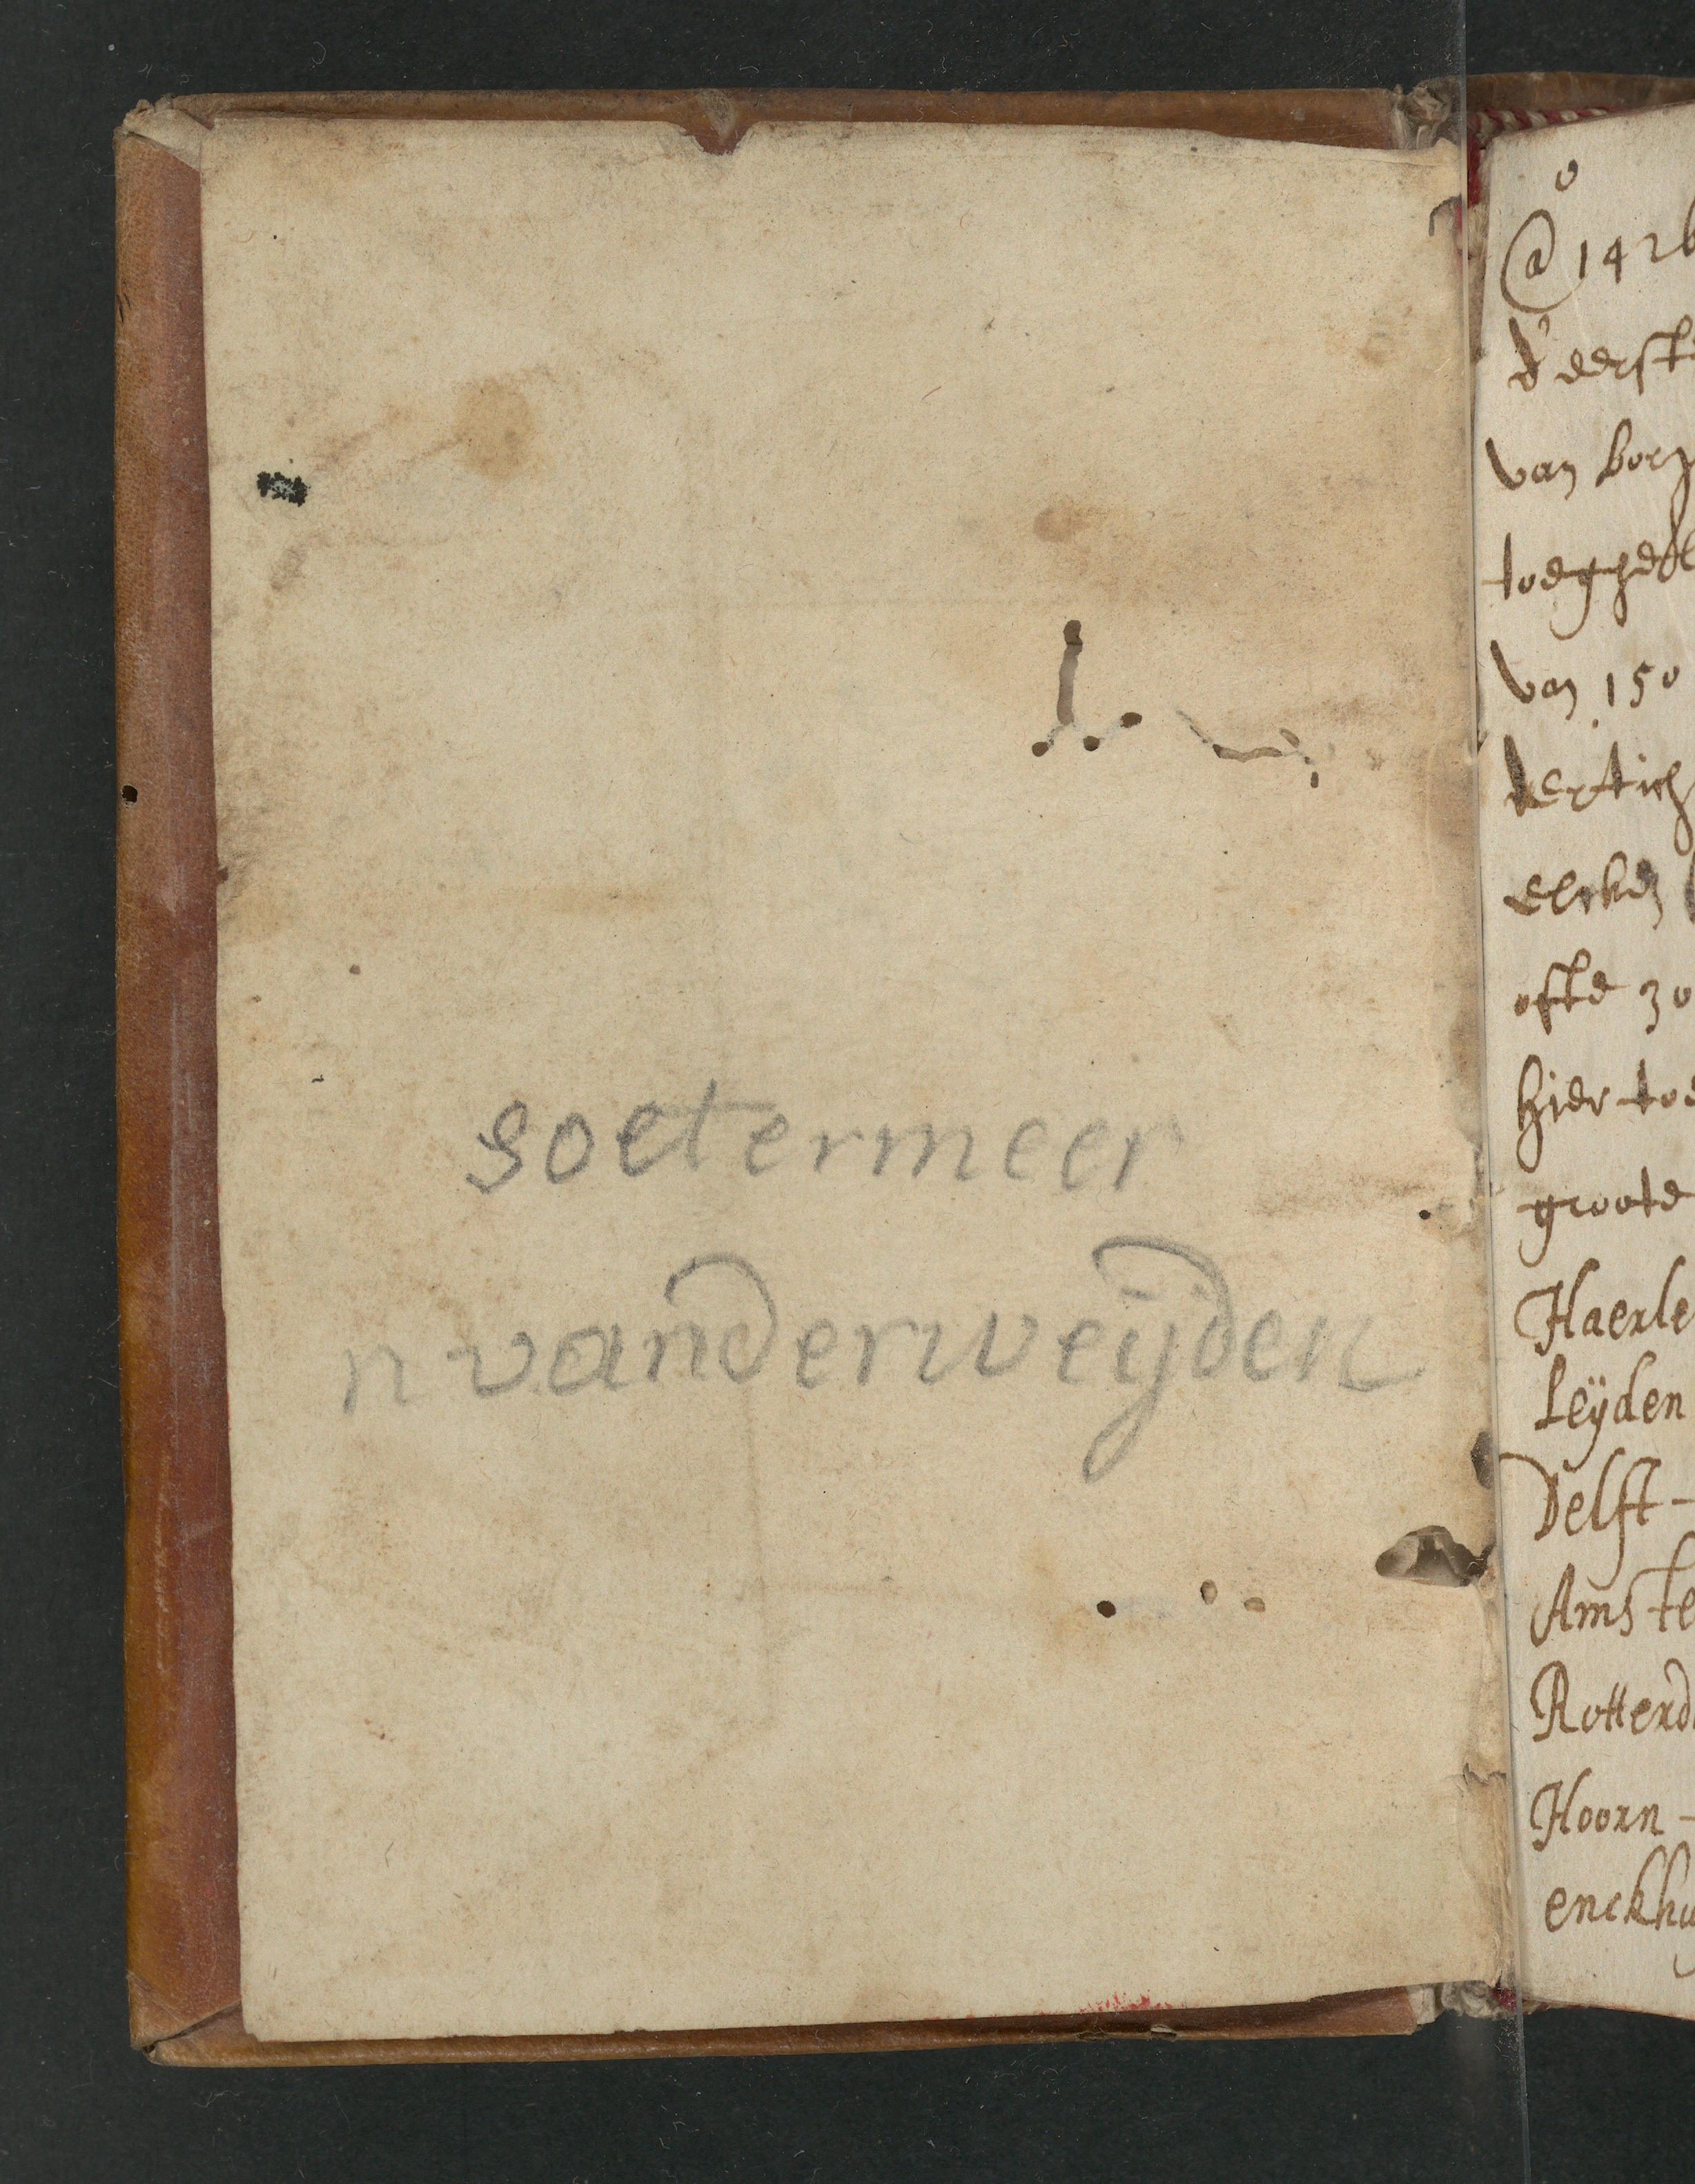 soetermeer
n vanderweijden
@ 142
d'eerste
van
van 150
dertich
elcken
ofte 30
hier toe
groote
Haerle
Leÿden
Delft -
Amste
Rotterd
Hoorn -
enckhu